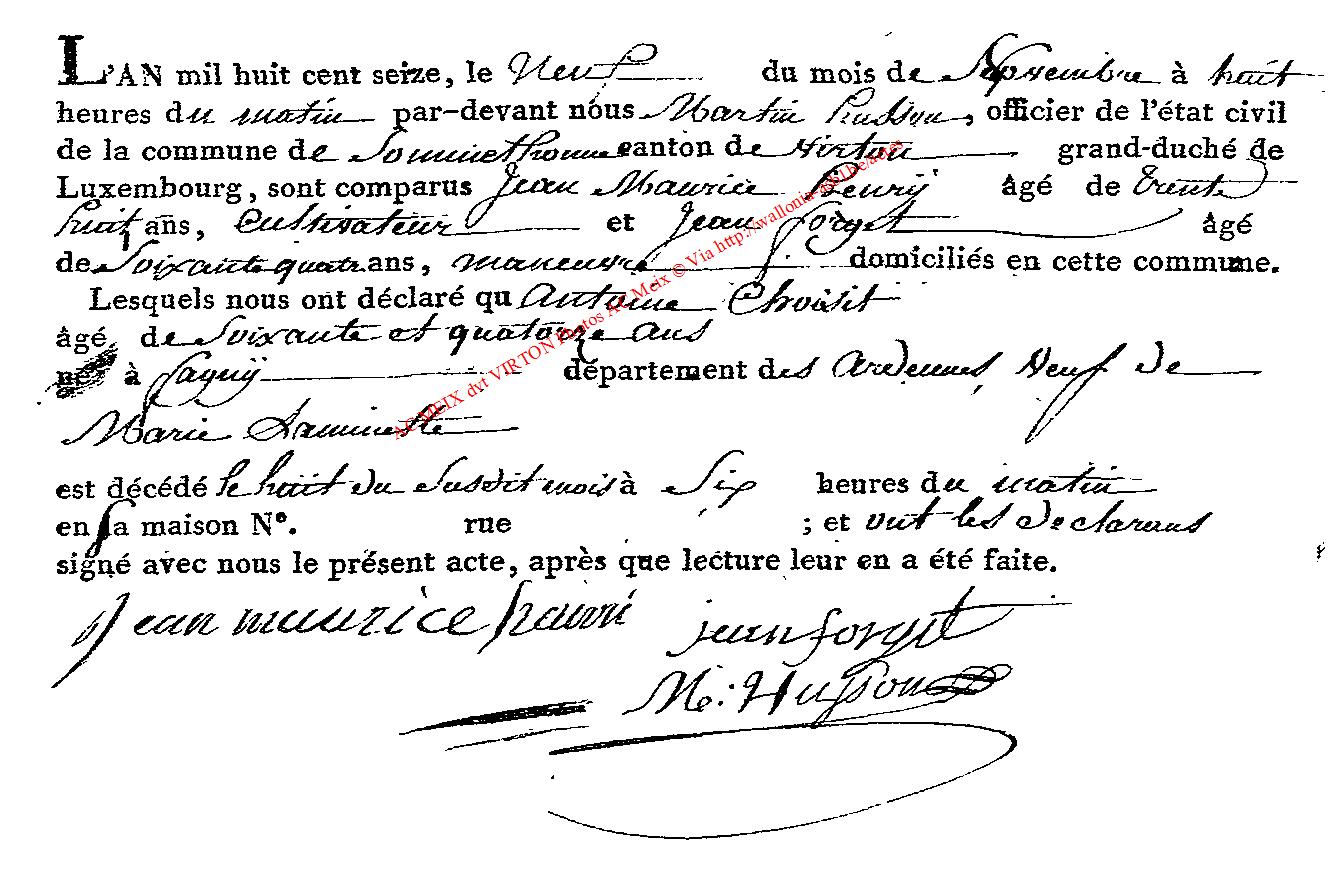 L'AN mil huit cent seize, le Neuf du mois de Septembre à huit
heures du matin par-devant nous Martin husson, officier de l'état civil
de la commune de Sommethonne canton de Virton grand-duché de
Luxembourg, sont comparus Jean Maurice henrÿ âgé de trente
huit ans, Cultivateur et Jean forget âgé
de Soixante quatre ans, maneuvre domiciliés en cette commune.
Lesquels nous ont déclaré qu Antoine Choisit
âgé de Soixante et quatorze ans
né à Sagnÿ département des Ardennes, Veuf de
Marie
est décédé le huit du Susdit mois à Six heures du matin
en sa maison N°. rue ; et ont les declarans
signé avec nous le présent acte, après que lecture leur en a été faite.
jean maurice
jean forget
M: Husson
AC MEIX dvt VIRTON Photos AC Meix © Via http://wallonia-asbl.be/ades